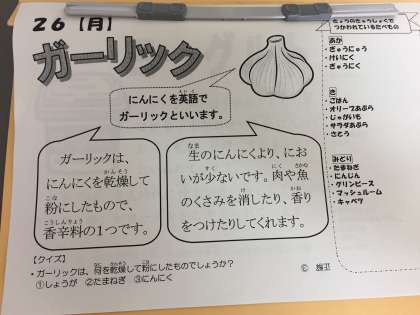 26【月】
ガーリック
にんにくを英語で
ガーリックといいます。
ガーリックは、
にんにくを乾燥して
粉にしたもので、
香辛料の1つです。
生のにんにくより、にお
いが少ないです。肉や魚
のくさみを消したり、香り
をつけたりしてくれます。
【クイズ】
・ガーリックは、何を乾燥して粉にしたものでしょうか？
①しょうが ②たまねぎ ③にんにく
きょうのきゅうしょくで
つかわれているたべもの
あか
・ぎゅうにゅう
・けいにく
・ぎゅうにく
き
・ごはん
・オリーブあぶら
・じゃがいも
・サラダあぶら
・さとう
みどり
・たまねぎ
・にんじん
・グリンピース
・マッシュルーム
・キャベツ